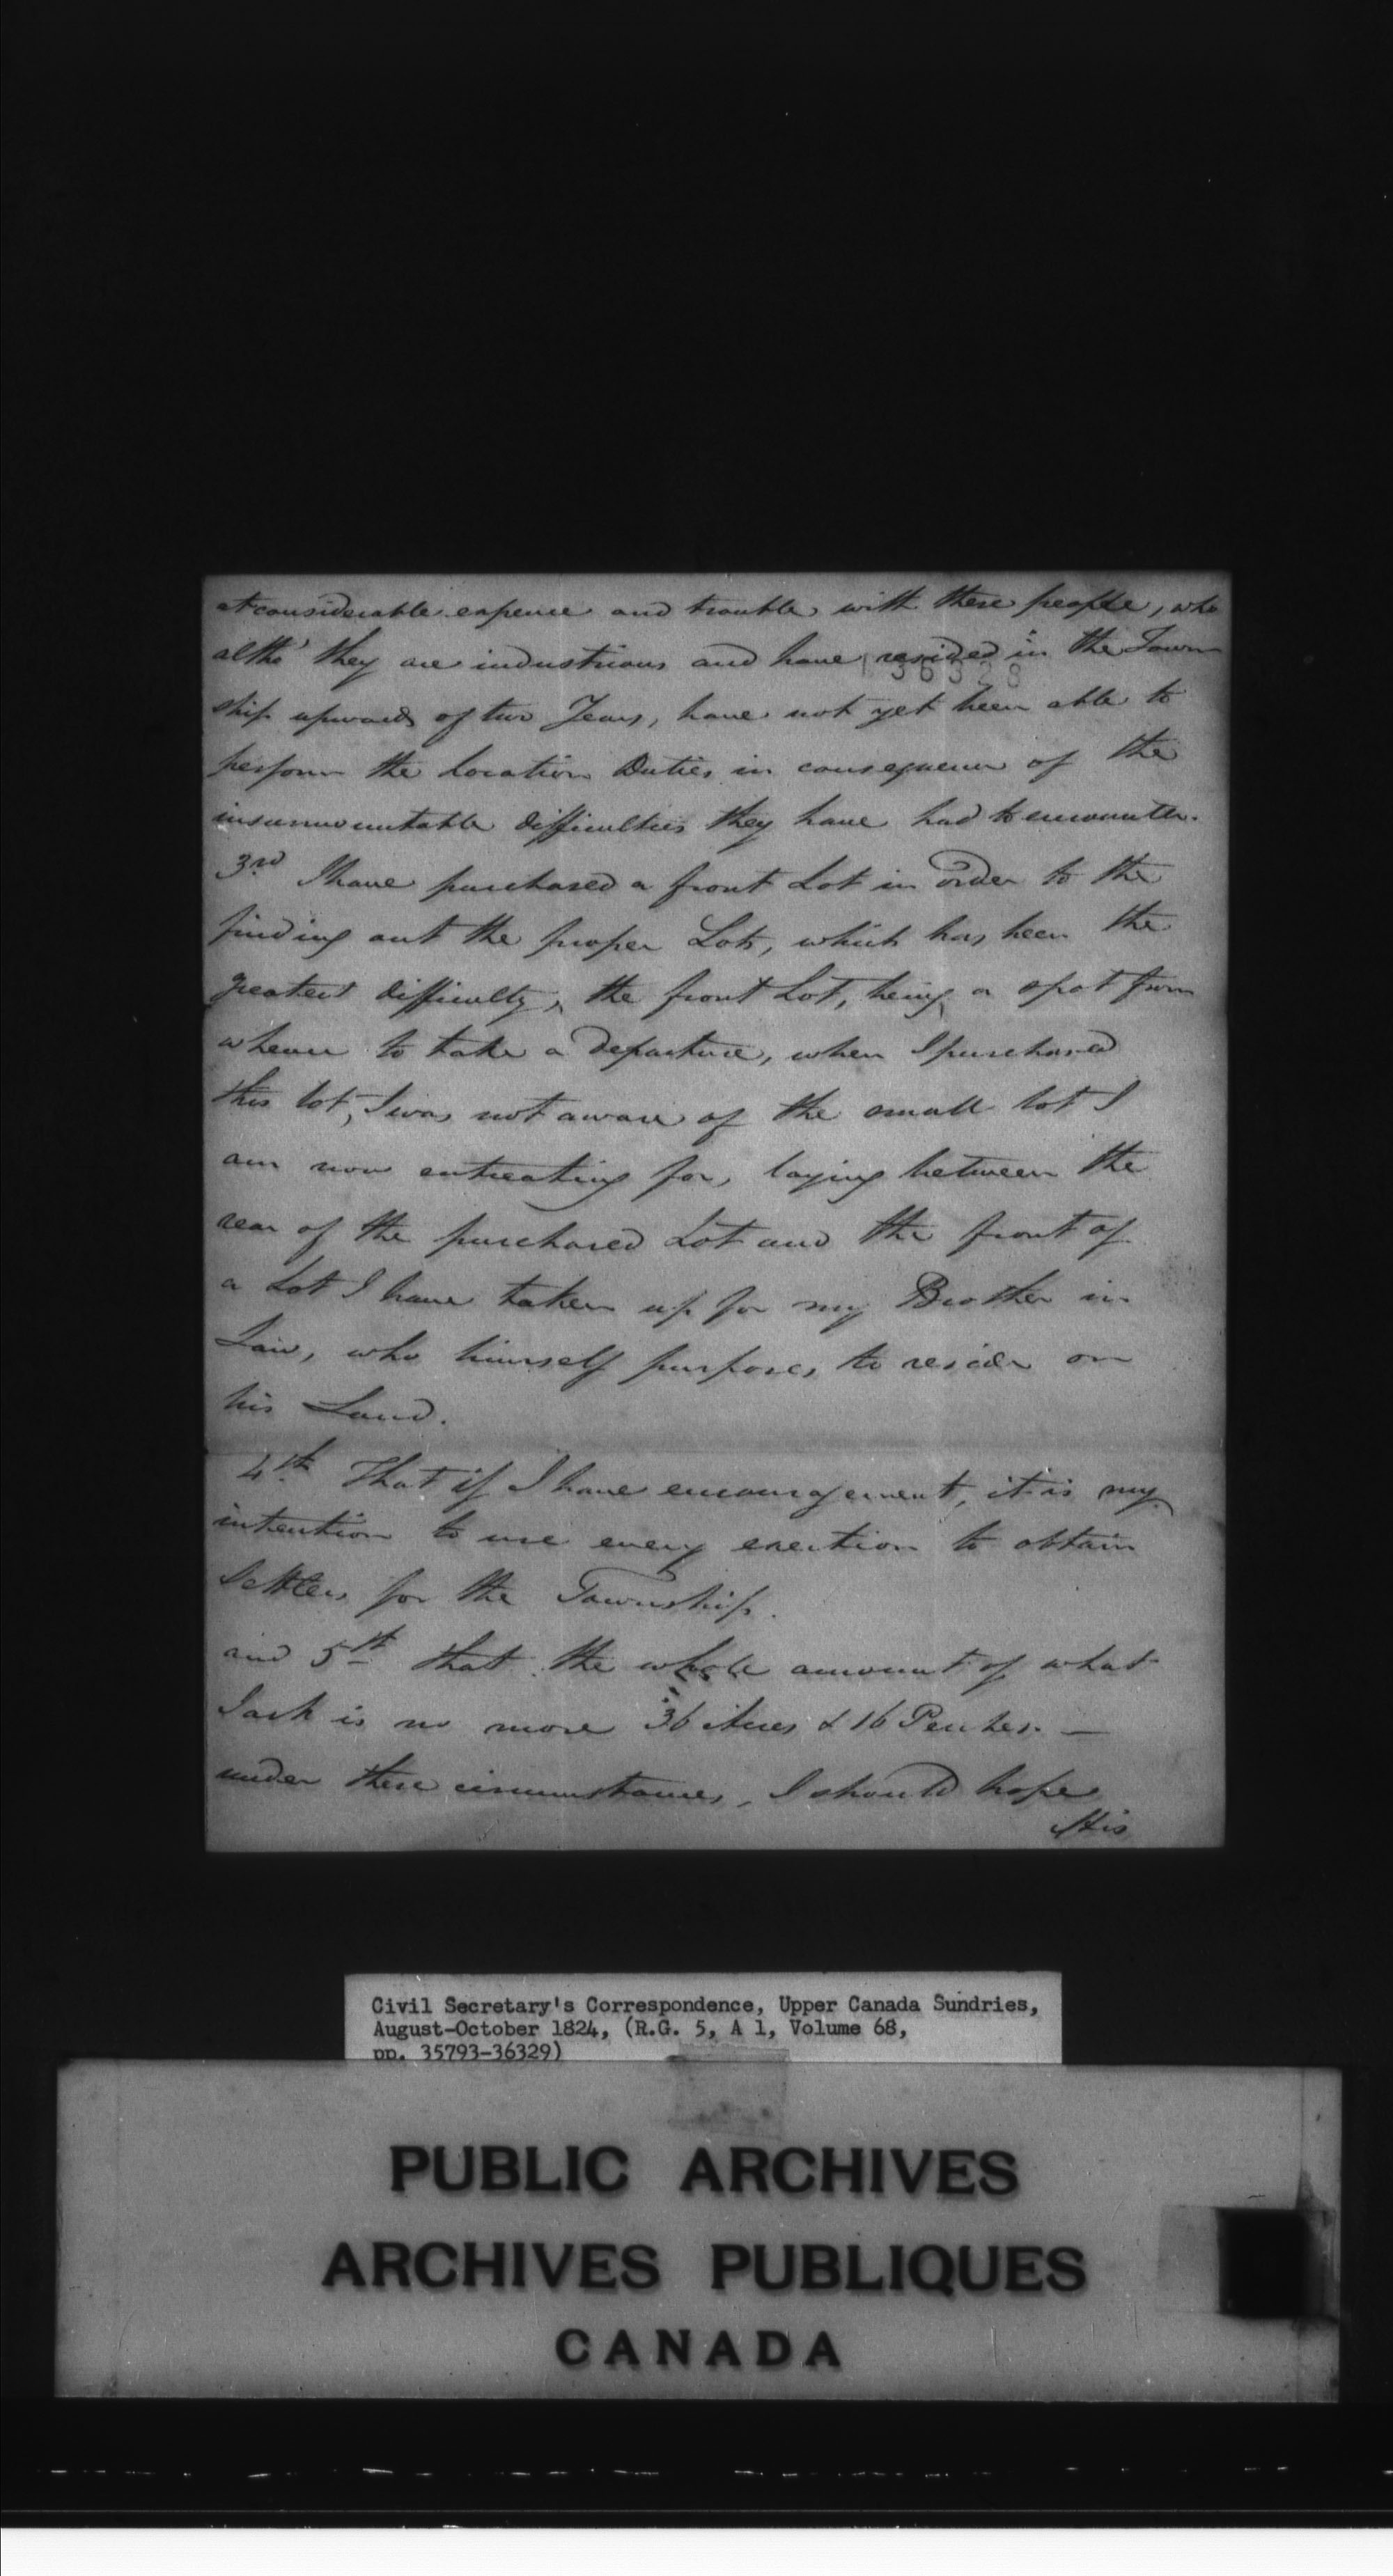 at considerable expence and trouble with these people, who
altho' they are industrious and have resided in the Town
36328
ship upwards of two Years, have not yet been able to
perform the Location Duties in consequence of the
insurmountable difficulties they have had to encounter.
3rd I have purchased a front Lot in order to the
finding out the proper Lots, which has been the
greatest difficulty, the front Lot, being a spot from
whence to take a departure, when I purchased
this lot, I was not aware of the small lot I
am now entreating for, laying between the
rear of the purchased Lot and the front of
a Lot I have taken up for my Brother in
Law, who himself purposes to reside on
his Land.
4th That if I have encouragement, it is my
intention to use every exertion to obtain
Settlers for the Township.
and 5th that the whole amount of what
I ask is no more 36 Acres & 16 Perches. —
under these circumstances, I should hope
His
Civil Secretary's Correspondence, Upper Canada Sundries,
August-October 1824, (R.G. 5, A 1, Volume 68,
pp. 35793-36329)
PUBLIC ARCHIVES
ARCHIVES PUBLIQUES
CANADA